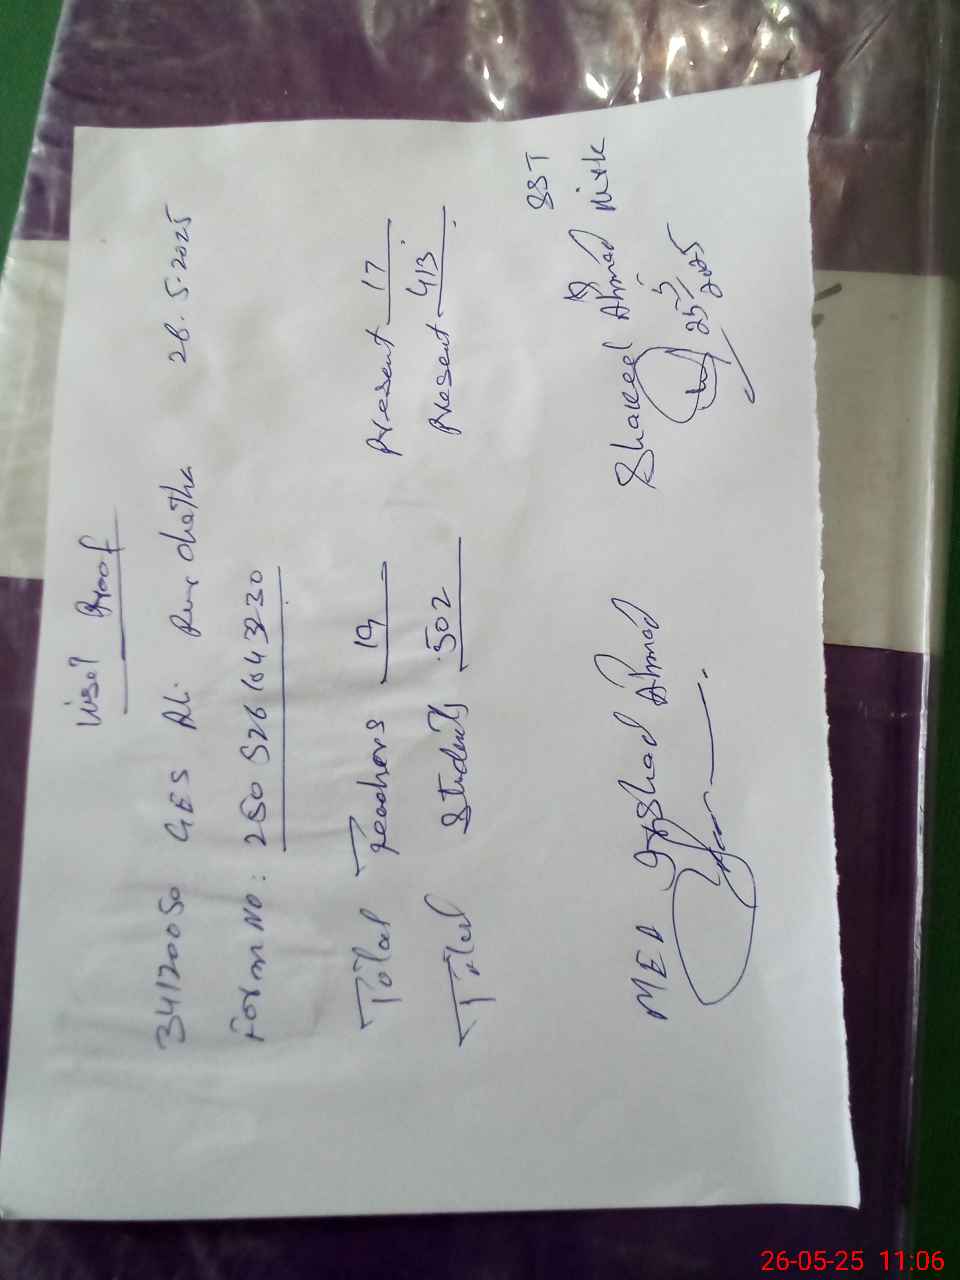 Visit Proof
34120050 GES Ali Pur Chatha 26.5.2025
Form No: 2505261643230
Total Teachers 19 Present 17
Total Students 502 Present 413
SST
MEA Irshad Ahmad Shakeel Ahmad
25/5/2025
26-05-25 11:06